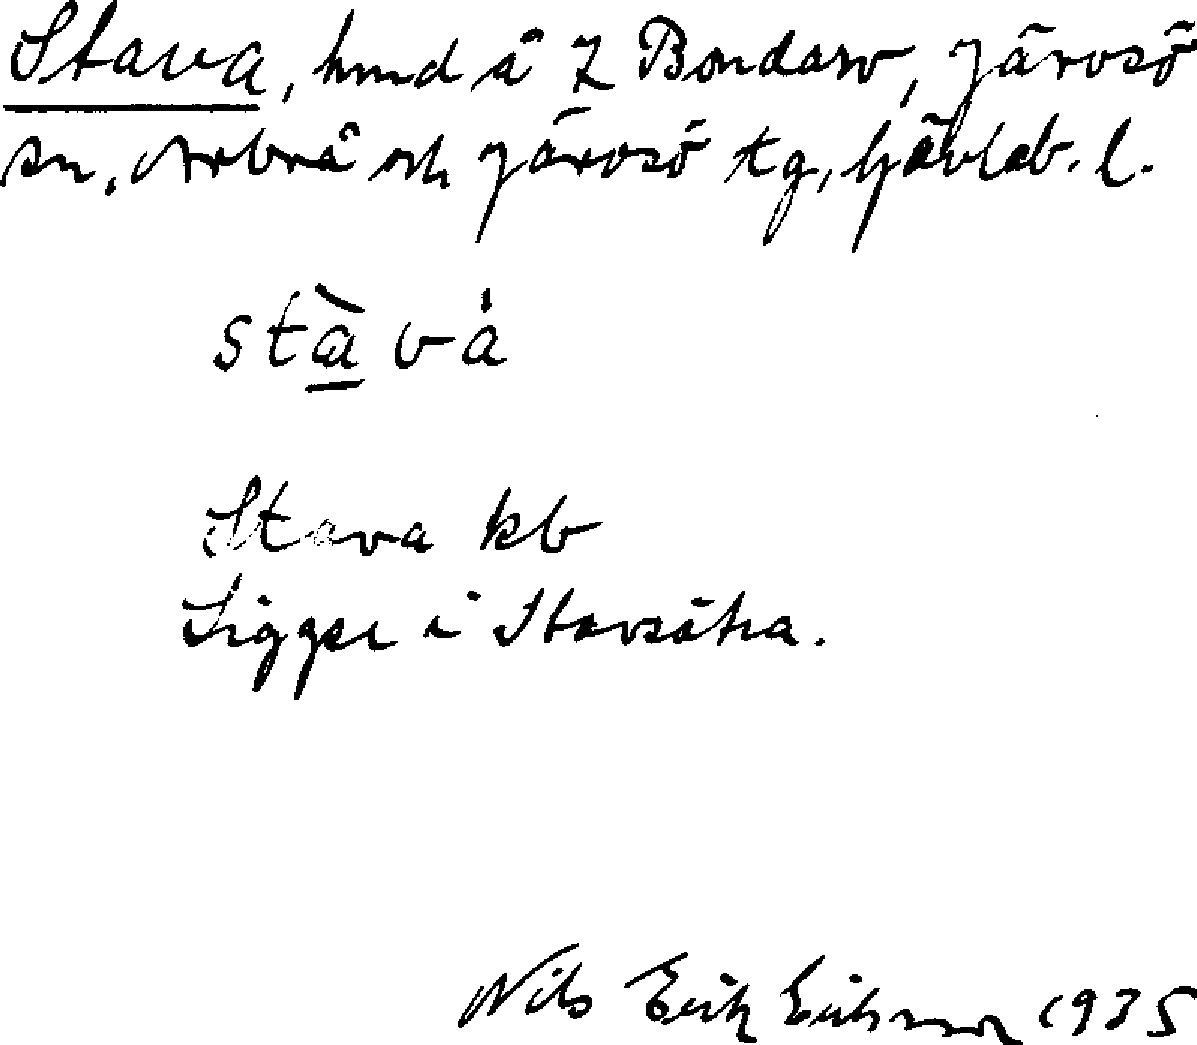 Stava, hmd å Z Bondarv, Järvsö
sn, Arbrå och Järvsö tg, Gävleb. l.
stàvȧ
Stava kb
Ligger i Stavsätra.
Nils Erik Eriksson 1935